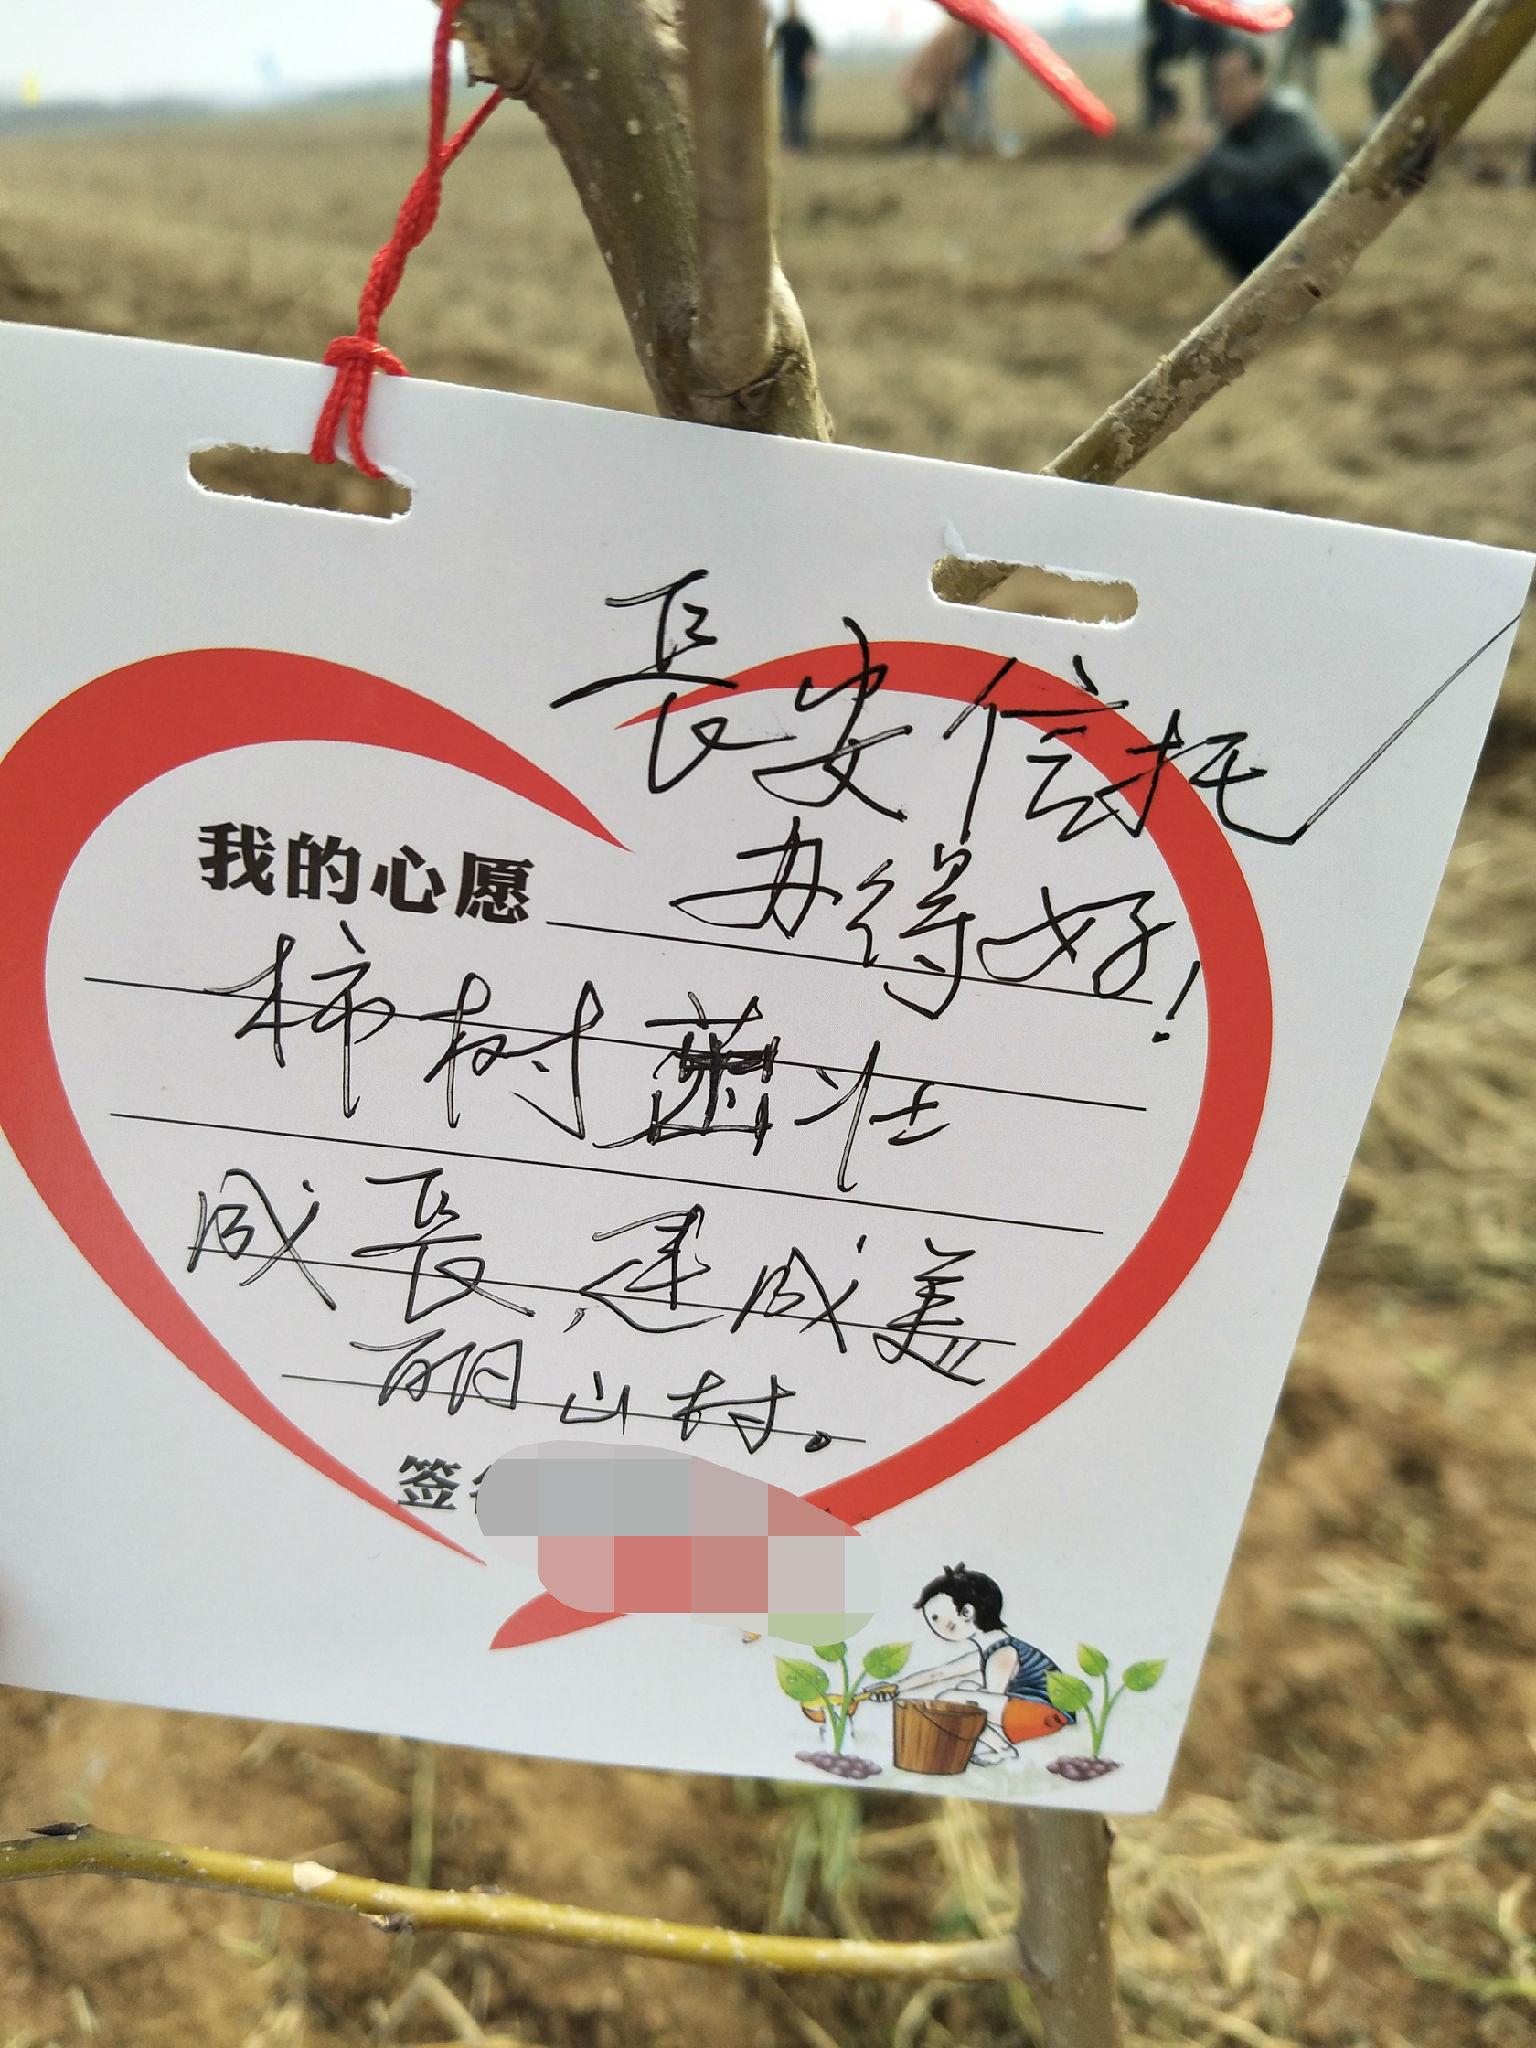 長安信托
我的心愿 办得好!
柿树茁壮
成長,建成美
丽山村。
签